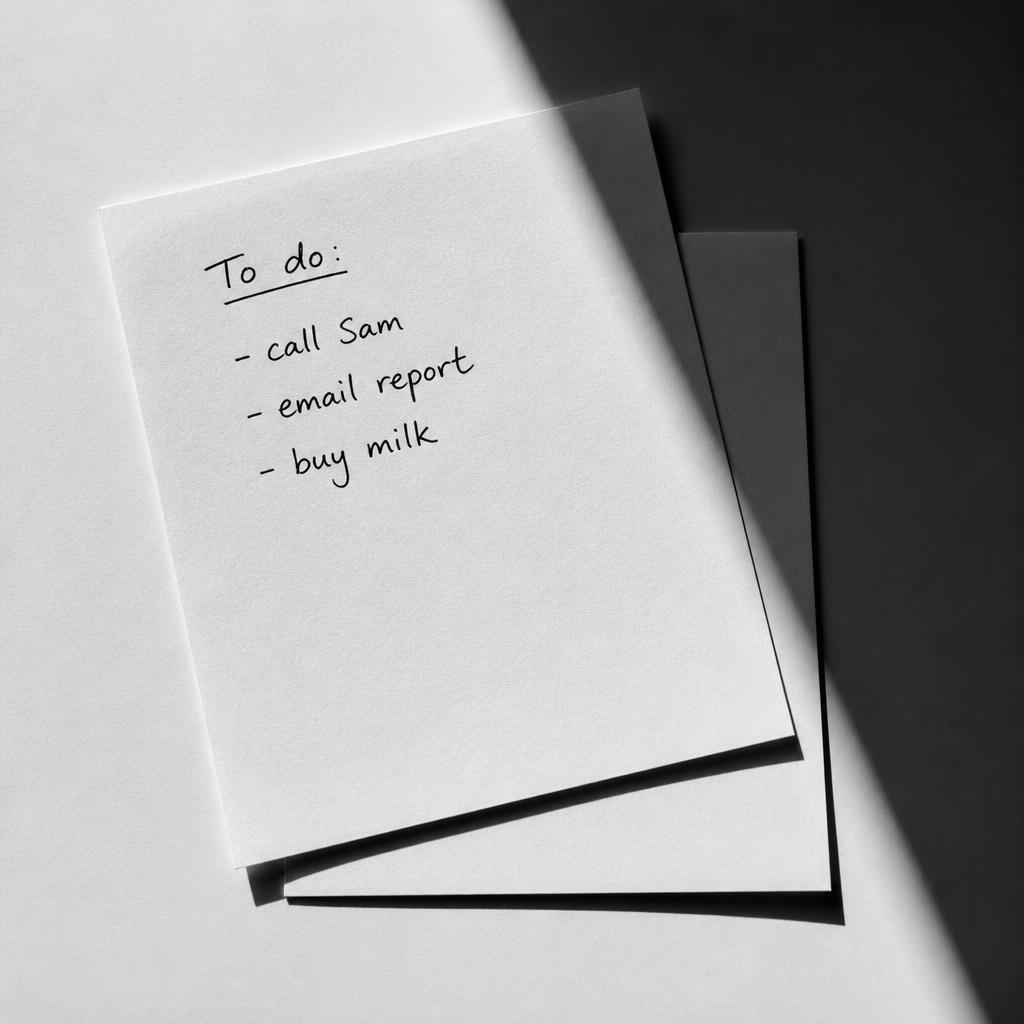 To do:
- call Sam
- email report
- buy milk